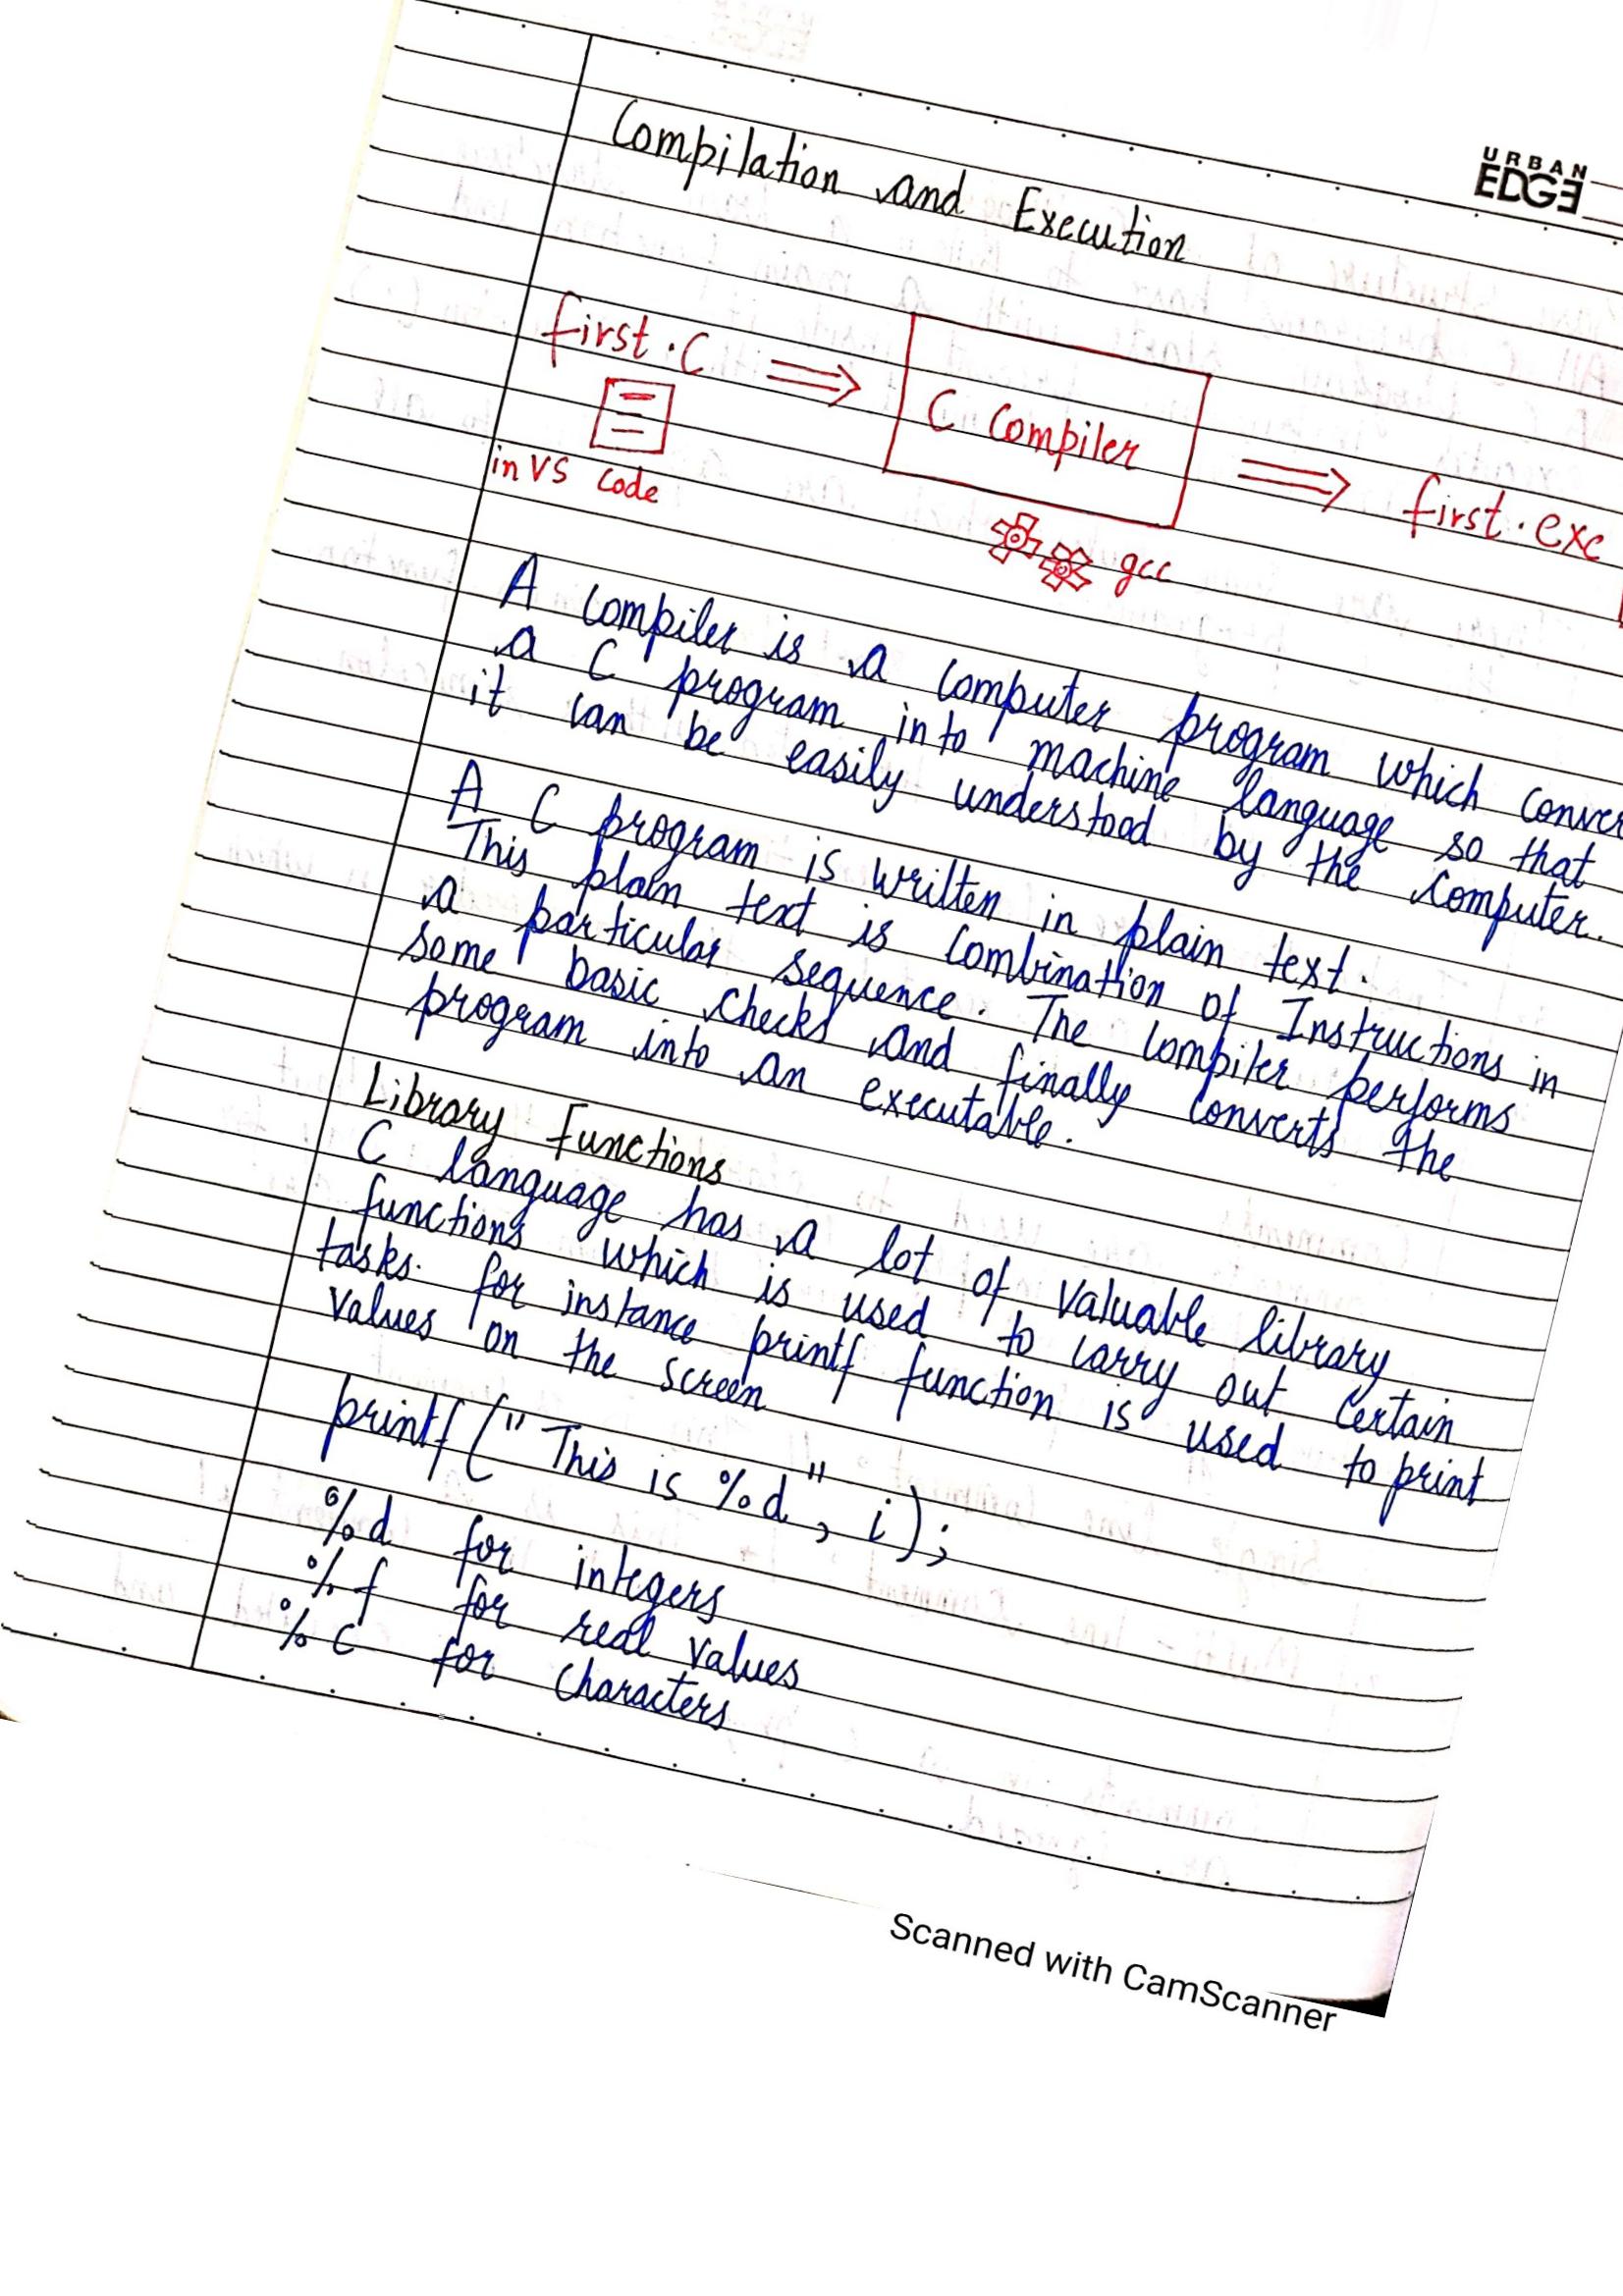 URBAN
EDGE
Compilation and Execution
first.C ⟹ C Compiler ⟹ first.exe
in VS Code
gcc
A Compiler is a Computer program which conver
a C program into machine language so that
it can be easily understood by the Computer.
A C program is written in plain text.
This plain text is Combination of Instructions in
a particular sequence. The Compiler performs
some basic checks and finally Converts the
program into an executable.
Library Functions
C language has a lot of valuable library
functions which is used to carry out Certain
tasks. for instance printf function is used to print
values on the screen
printf("This is %d", i);
%d for integers
%f for real values
%c for Characters
Scanned with CamScanner